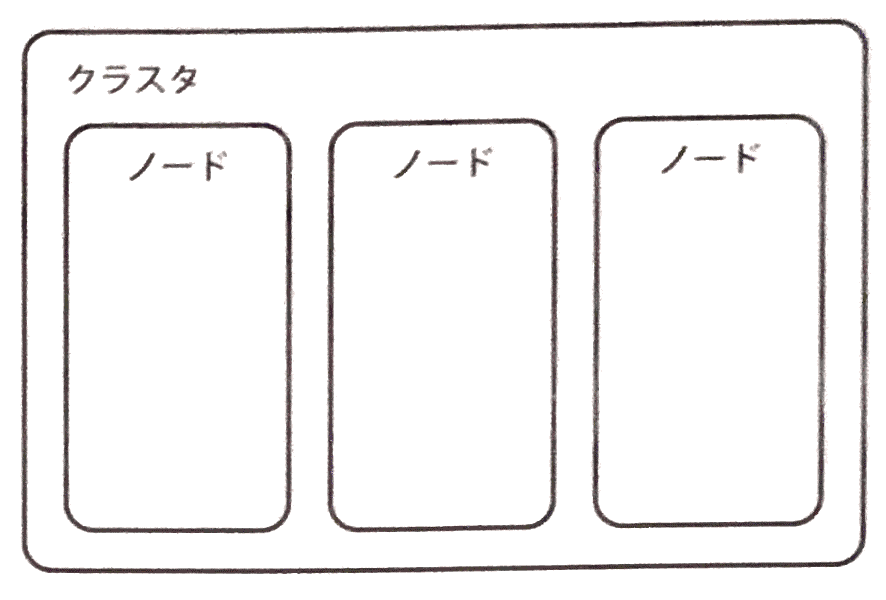 クラスタ
ノード ノード ノード